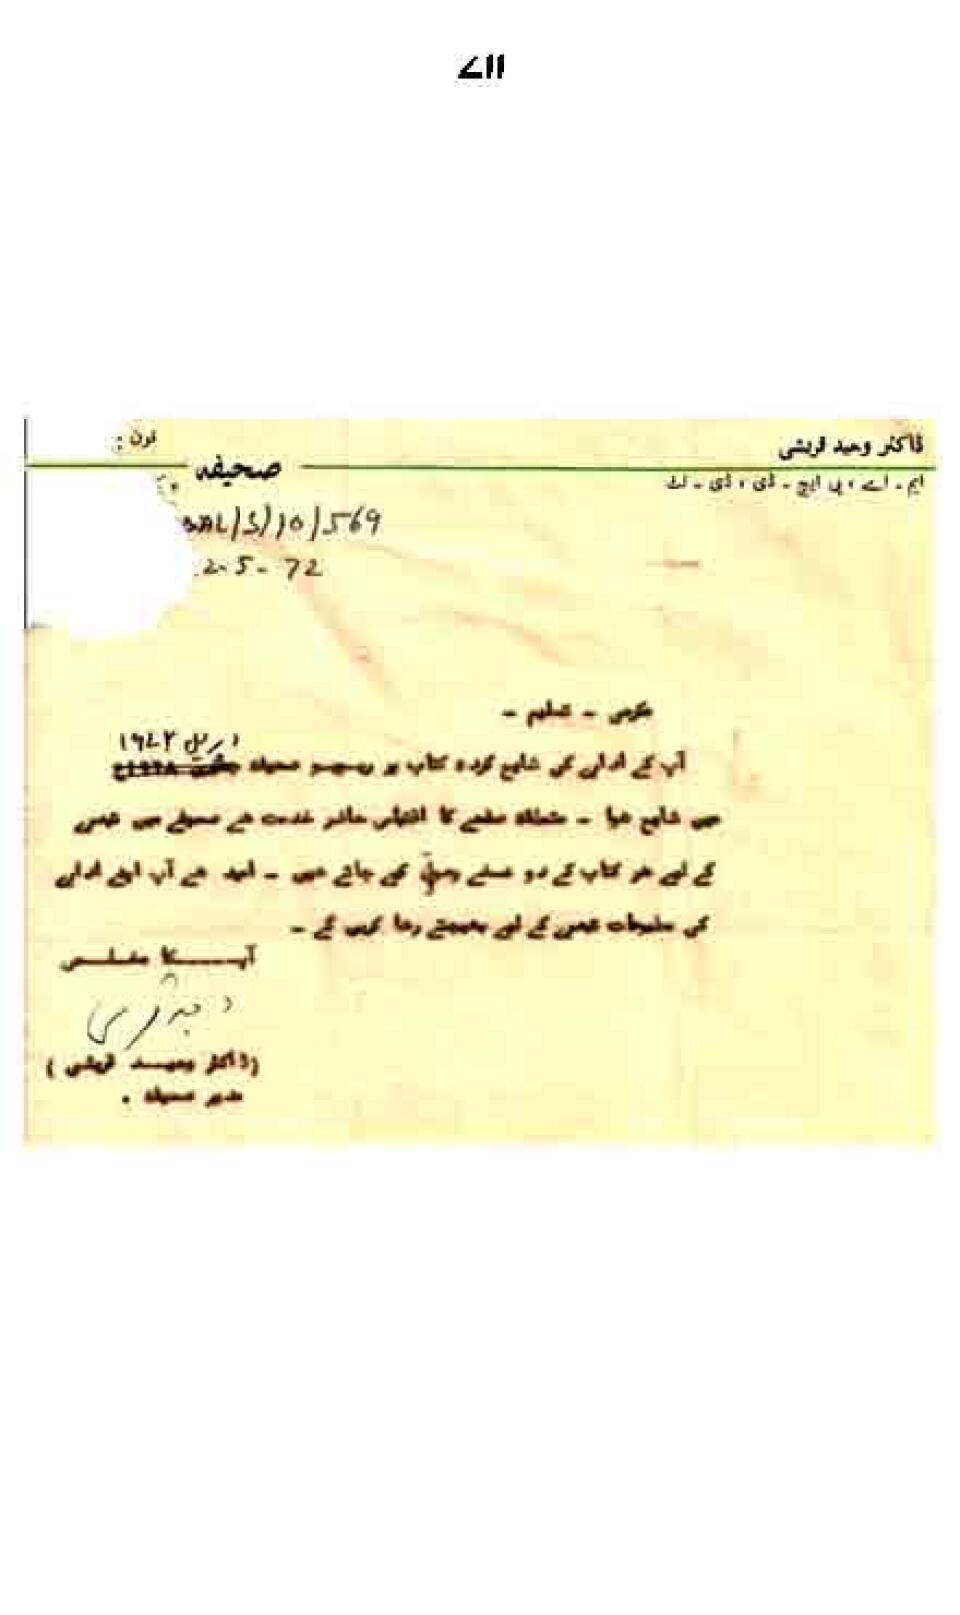 ۷۱۱
ڈاکٹر وحید قریشی
ایم - اے ، پی ایچ - ڈی ، ڈی - لٹ
فون :
صحیفہ
/S/10/569
2-5-72
مکرمی - تسلیم -
اپریل ۱۹۷۲
آپ کے ادارے کی شایع کردہ کتاب پر ریویو صحیفہ
میں شایع ہوا - متعلقہ صفحے کا اقتباس حاضر خدمت ہے صحیفے میں تبصرے
کے لیے ہر کتاب کے دو نسخے وصول کیے جاتے ہیں - امید ہے آپ اپنے ادارے
کی مطبوعات تبصرے کے لیے بھیجتے رہا کریں گے -
آپ کا مخلص
(ڈاکٹر وحید قریشی)
مدیر صحیفہ .